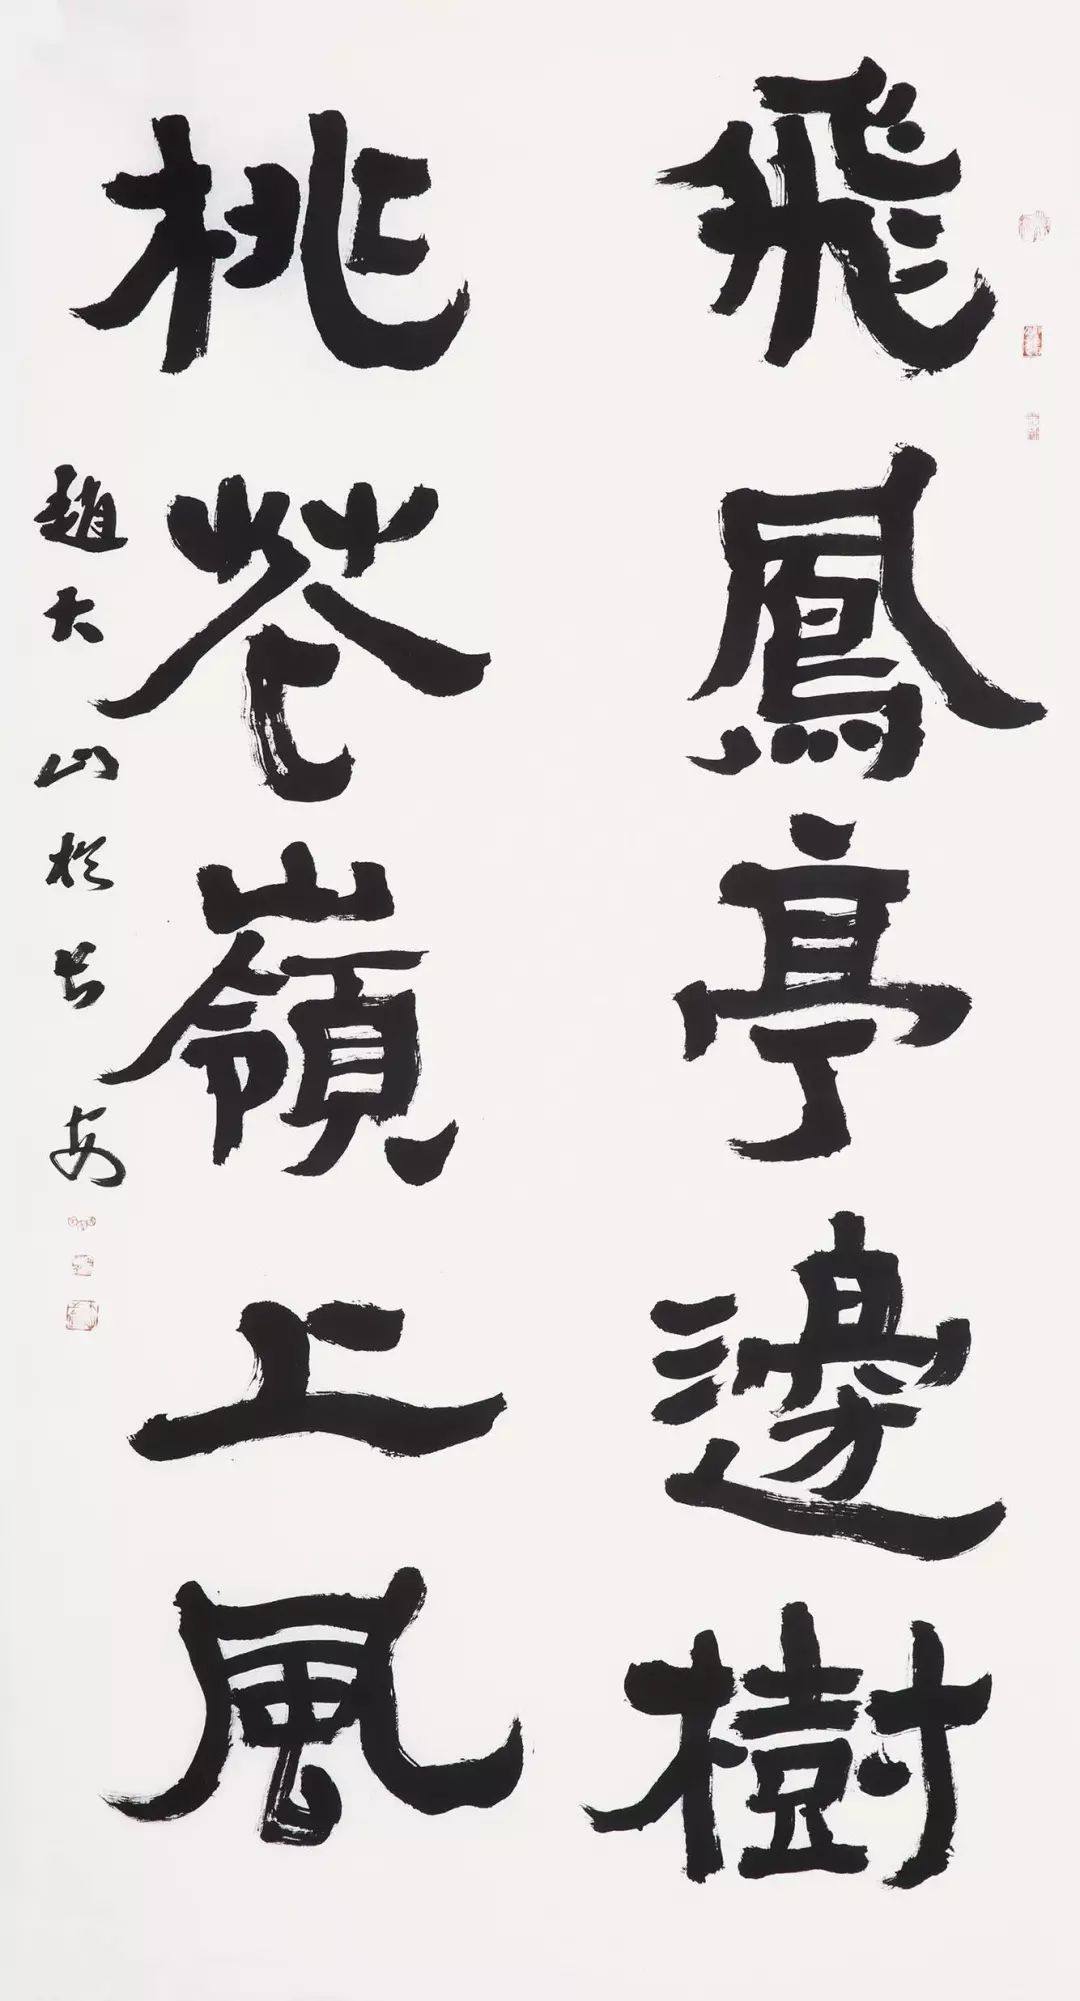 飛鳳亭邊樹
桃花嶺上風
趙大山於長安